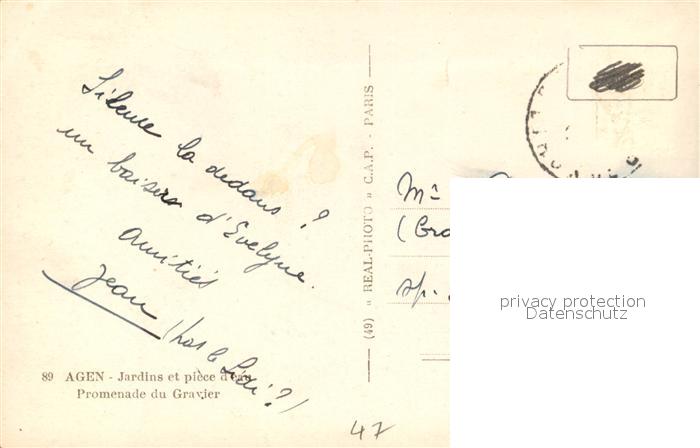 Silence la dedans ?
un baiser d'Evelyne.
Amitiés
Jean (pas le Lidi ?)
89 AGEN - Jardins et pièce d'eau
Promenade du Gravier
(49) " REAL-PHOTO " C.A.P. - PARIS
Mr
sp.
47
privacy protection
Datenschutz